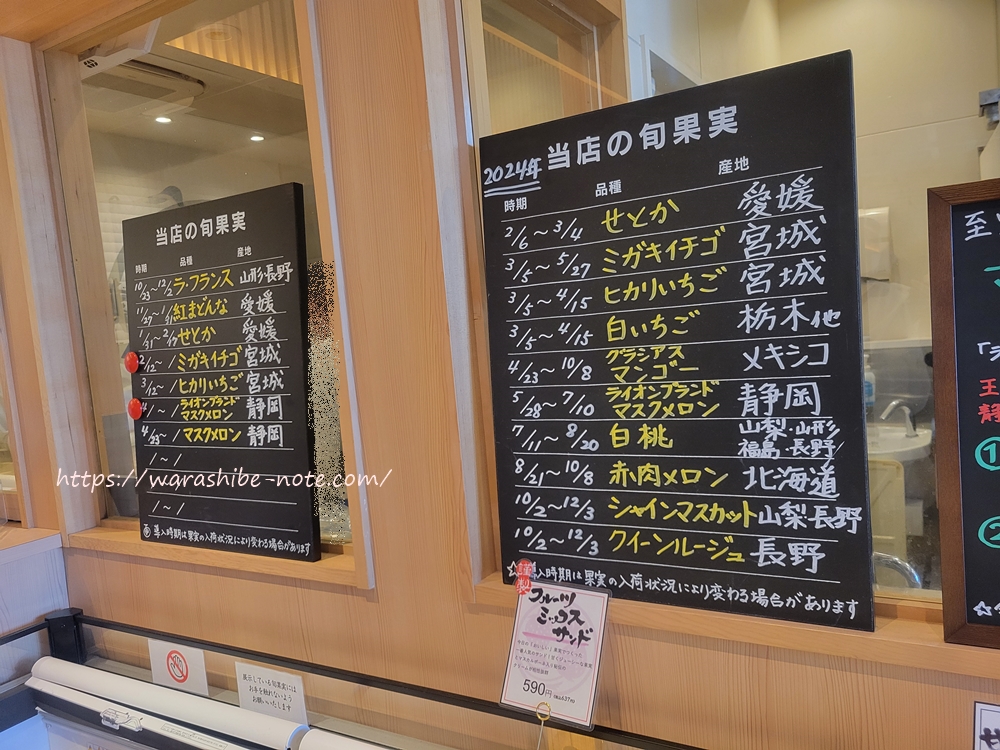 当店の旬果実
時期 品種 産地
10/23~12/2 ラ・フランス 山形・長野
11/27~1/31 紅まどんな 愛媛
1/31~2/17 せとか 愛媛
2/12~/ ミガキイチゴ 宮城
3/12~/ ヒカリいちご 宮城
4/~/ ライオンブランド
マスクメロン 静岡
4/23~/ マスクメロン 静岡
/~/
/~/
導入時期は果実の入荷状況により変わる場合があります
https://warashibe-note.com/
2024年 当店の旬果実
時期 品種 産地
2/6~3/4 せとか 愛媛
3/5~5/27 ミガキイチゴ 宮城
3/5~4/15 ヒカリいちご 宮城
3/5~4/15 白いちご 栃木他
4/23~10/8 グラシアス
マンゴー メキシコ
5/28~7/10 ライオンブランド
マスクメロン 静岡
7/11~8/20 白桃 山梨・山形
福島・長野
8/21~10/8 赤肉メロン 北海道
10/2~12/3 シャインマスカット 山梨・長野
10/2~12/3 クイーンルージュ 長野
☆導入時期は果実の入荷状況により変わる場合があります
謹製
フルーツ
ミックス
サンド
590円
展示している旬果実には
お手を触れないよう
お願いいたします
至
王
静
①
②